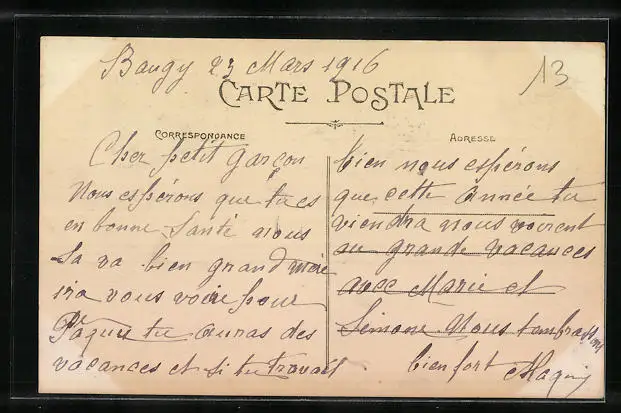 Baugy 23 Mars 1916
13
CARTE POSTALE
CORRESPONDANCE
ADRESSE
Cher petit garçon
Nous espérons que tu es
en bonne Santé nous
Sa va bien grand mère
ira vous voire pour
Paques tu auras des
vacances et si tu travail
bien nous espérons
que cette année tu
viendra nous voir
au grande vacances
avec Marie et
Simone Nous
bien fort